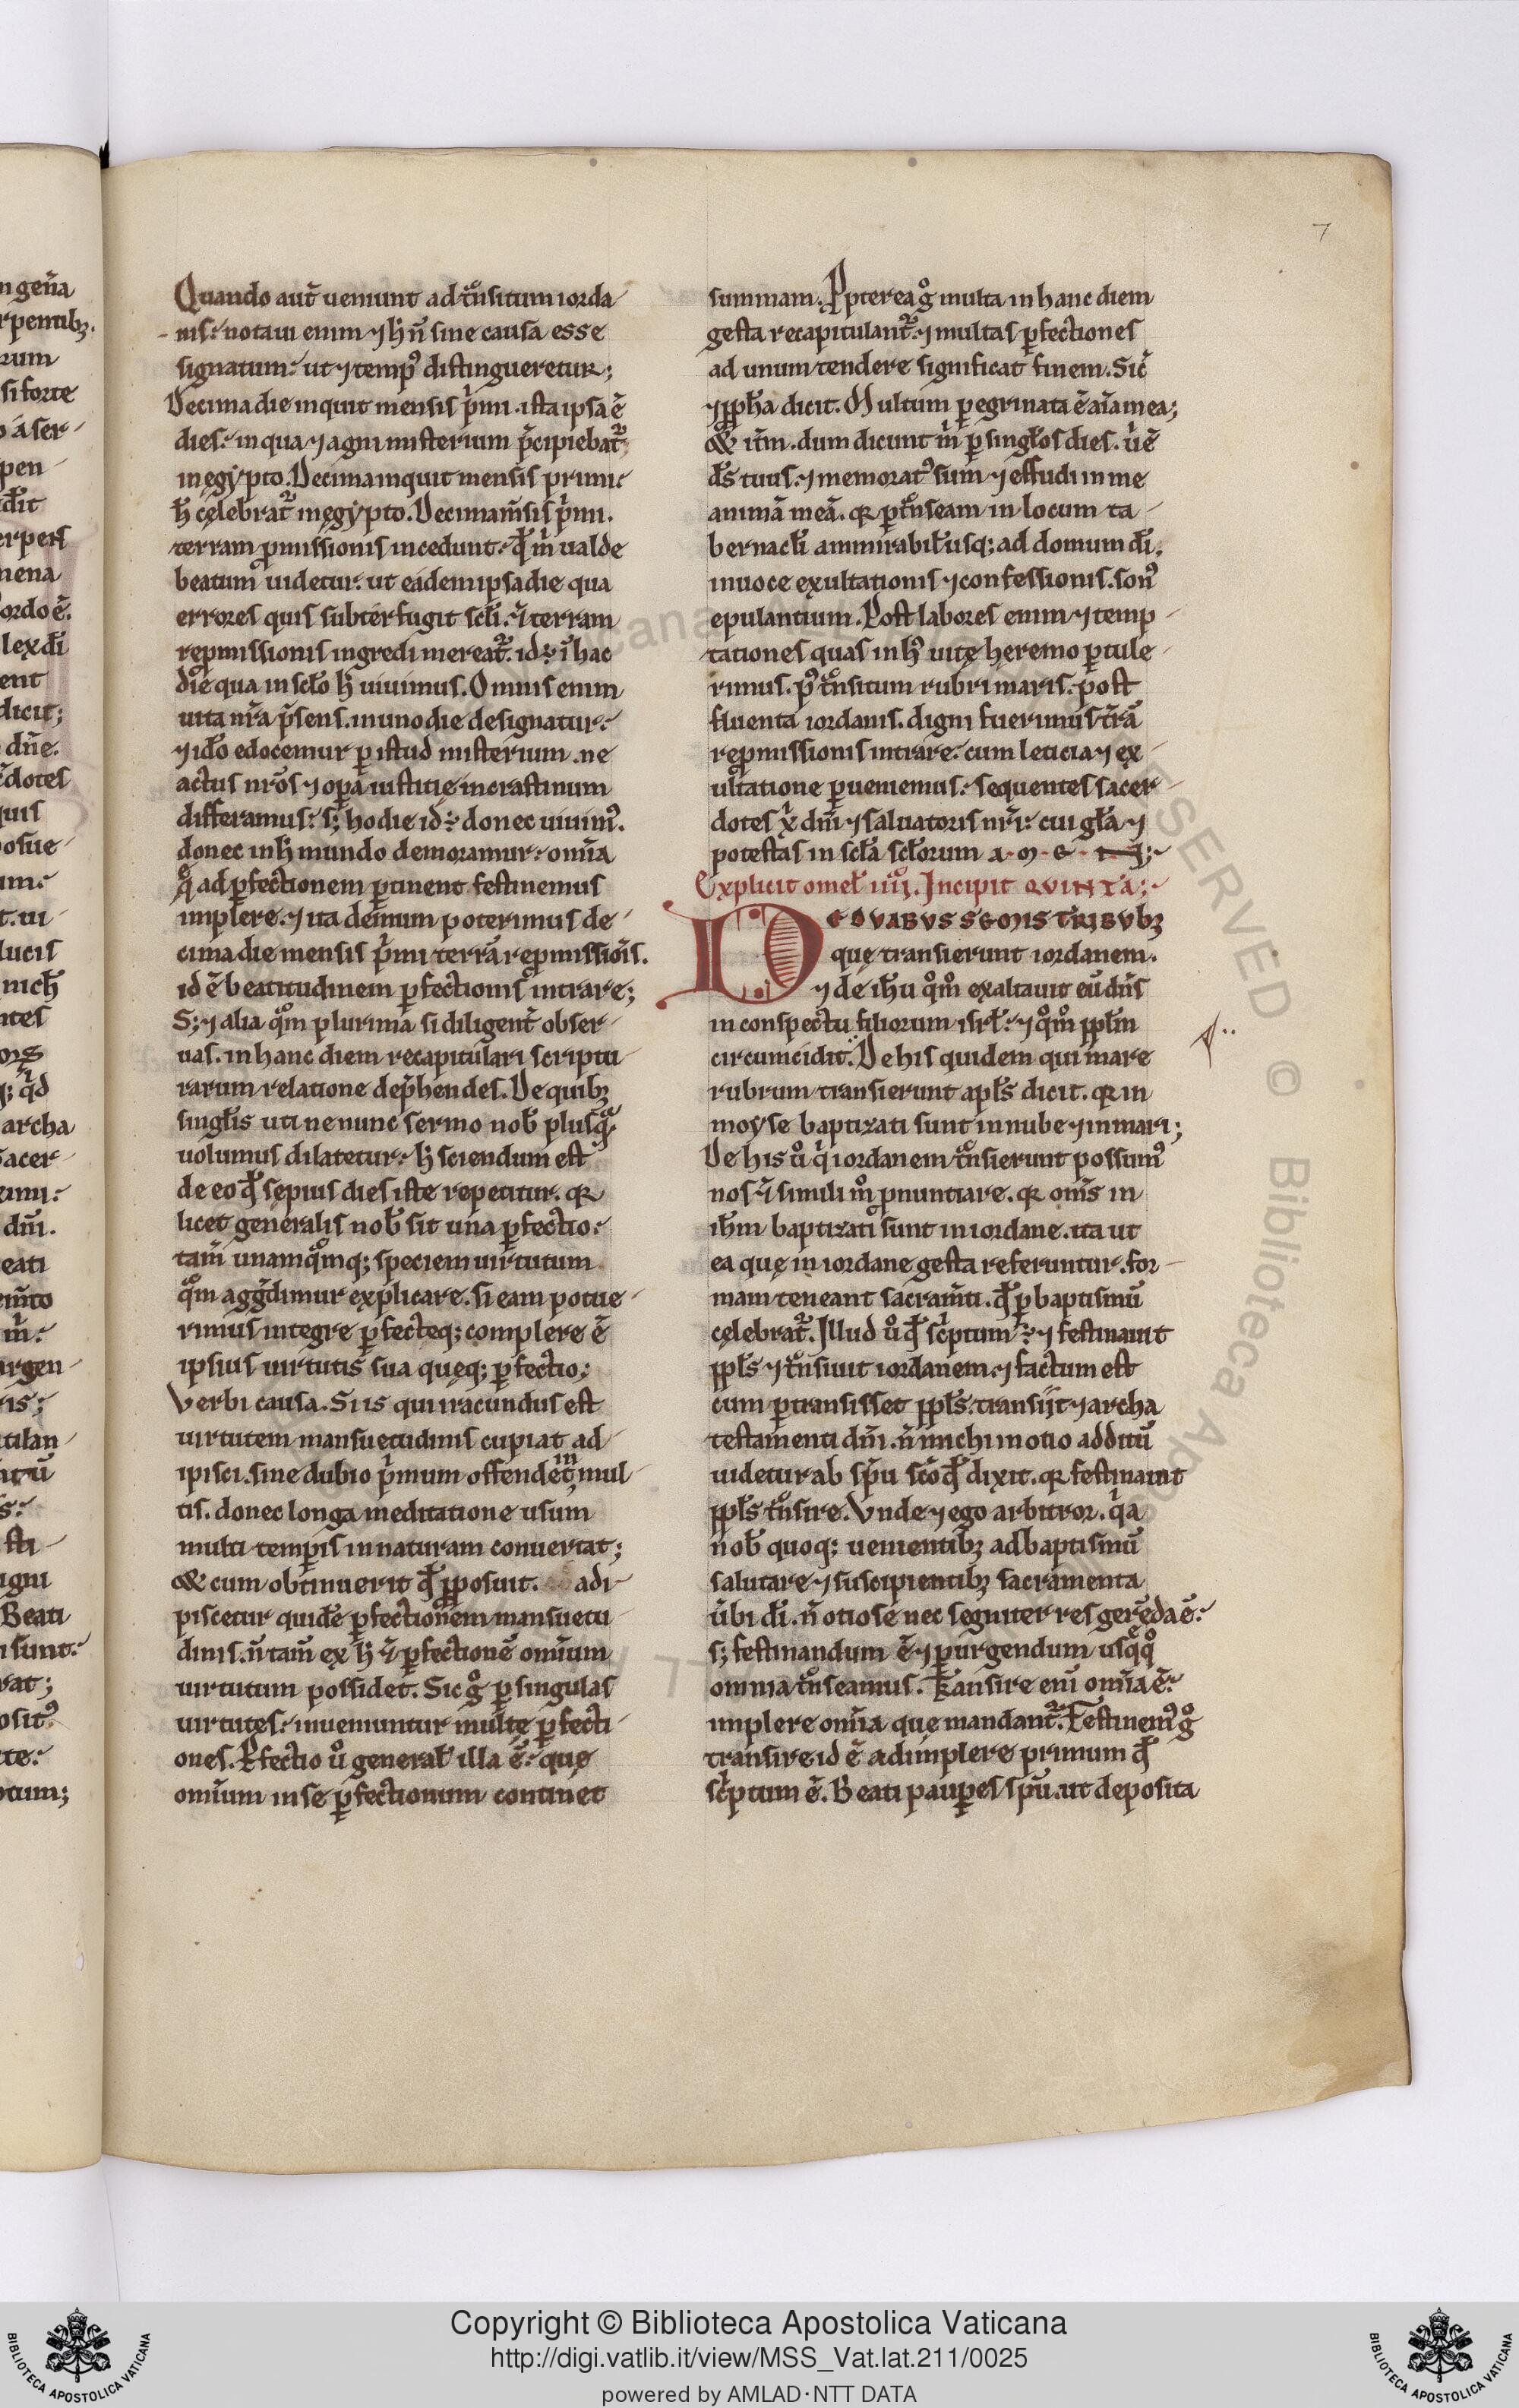 7
Quando aut̄ ueniunt ad t̊nsitum iorda-
nis: notaui enim ⁊ h̄ n̄ sine causa esse
signatum: ut ⁊ temp᷒ distingueretur;
Decima die inquit mensis p̄mi. ista ipsa ē
dies: in qua ⁊ agni misterium p̄cipiebat᷑
in egẏpto. Decima inquit mensis primi:
h̄ cęlebrat᷑ in ęgẏpto. Decima m̄sis p̄mi.
terram ꝓmissionis incedunt: qđ m̄ ualde
beatum uidetur. ut eadem ipsa die qua
errores quis subterfugit scłi. ⁊ī terram
repꝓmissionis ingredi mereat᷑. id ÷ ī hac
die qua in scło h̄ uiuimus. Omnis enim
uita nr̄a p̄sens. in uno die designatur:
⁊ iđo edocemur ꝑ istud misterium. ne
actus nr̄os ⁊ oꝑa iustitię in crastinum
differamus: s; hodie id ÷ donec uiuim᷒.
donec in h̄ mundo demoramur: om̄ia
q̄ ad ꝑfectionem ꝑtinent festinemus
implere. ⁊ ita demum poterimus de-
cima die mensis p̄mi terrā repꝓmissiōis.
id ē beatitudinem ꝑfectionis intrare;
S; ⁊ alia q̊m plurima si diligent̄ obser-
uas. in hanc diem recapitulari scriptu-
rarum relatione dep̄hendes. De quibꝫ
singłis uti ne nunc sermo nob̄ plusq̄
uolumus dilatetur: h̄ sciendum est
de eo qđ sepius dies iste repetitur. qꝛ
licet generalis nob̄ sit una ꝑfectio:
tam̄ unamq̊mq; speciem uirtutum
q̊m agḡdimur explicare. si eam potue-
rimus integre ꝑfecteq; complere ē
ipsius uirtutis sua quęq; ꝑfectio;
Verbi causa. Si is qui iracundus est
uirtutem mansuetudinis cupiat ad-
ipisci. sine dubio p̄mum offendet᷑ in mul-
tis. donec longa meditatione usum
multi temꝑis in naturam conuertat;
& cum obtinuerit qđ ꝓposuit. adi-
piscetur quidē ꝑfectionem mansuetu-
dinis. n̄ tam̄ ex h̄ ⁊ī ꝑfectionē om̄ium
uirtutum possidet. Sic g̊ ꝑ singulas
uirtutes: inueniuntur multę ꝑfecti-
ones. Ꝑfectio ů general̄ illa ē: quę
om̄ium in se ꝑfectionum continet
summam. Ꝓpterea g̊ multa in hanc diem
gesta recapitulant᷑: ⁊ multas ꝑfectiones
ad unum tendere significat finem. Sic̄
⁊ ꝓph̄a dicit. Multum ꝑegrinata ē aīa mea;
& it̄m. dum dicunt m̄ ꝑ singłos dies. u̇ ē
d̄s tuus: ⁊ memorat᷒ sum ⁊ effudi in me
animā meā. qꝛ ꝑt̊nseam in locum ta-
bernacłi ammirabił usq; ad domum dī.
in uoce exultationis ⁊ confessionis. son᷒
epulantium. Post labores enim ⁊ temp-
tationes quas in h᷒ uitę heremo ꝑtule-
rimus. p᷒ t̊nsitum rubri maris. post
fluenta iordanis. digni fuerimus t̄rā
repꝓmissionis intrare. cum leticia ⁊ ex-
ultatione ꝑueniemus: sequentes sacer-
dotes x̄ dn̄i ⁊ saluatoris nr̄i: cui gła ⁊
potestas in scła scłorum a·m·e·n;
Explicit omeł iiii. Incipit QVINTA;
DE DVABVS SEMIS TRIBVBꝫ
quę transierunt iordanem.
⁊ de ih̄u q̊m̊ exaltauit eū dn̄s
in conspectu filiorum isrł: ⁊ q̊m̊ ppłm
circumcidit. De his quidem qui mare
rubrum transierunt apłs dicit. qꝛ in
moẏse baptizati sunt in nube ⁊ in mari;
De his ů q̇ iordanem t̊nsierunt possum᷒
nos ⁊ī simili m̊ pronuntiare. qꝛ om̄s in
ih̄m baptizati sunt in iordane. ita ut
ea quę in iordane gesta referuntur. for-
mam teneant sacram̄ti. qđ ꝑ baptismū
cęlebrat᷑. Illud ů qđ sc̄ptum ÷ ⁊ festinauit
ppłs ⁊ t̊nsiuit iordanem: ⁊ factum est
cum ꝑtransisset ppłs. transiit ⁊ archa
testamenti dn̄i. n̄ michi in otio additū
uidetur ab sp̄u scō qđ dixit. qꝛ festinauit
ppłs t̊nsire. Vnde ⁊ ego arbitror. q̇a
nob̄ quoq; uenientibꝫ ad baptismū
salutare ⁊ suscipientibꝫ sacramenta
ūbi dī. n̄ otiose nec segniter res gerēda ē:
s; festinandum ē ⁊ ꝑurgendum usq̄q̊
omnia t̊nseamus. Transire enī om̄ia ē:
implere om̄ia quę mandant᷑. Festinem᷒ g̊
transire id ē adimplere primum qđ
sc̄ptum ē. Beati pauꝑes sp̄u. ut deposita
Copyright © Biblioteca Apostolica Vaticana
http://digi.vatlib.it/view/MSS_Vat.lat.211/0025
powered by AMLAD·NTT DATA
BIBLIOTECA APOSTOLICA VATICANA
BIBLIOTECA APOSTOLICA VATICANA